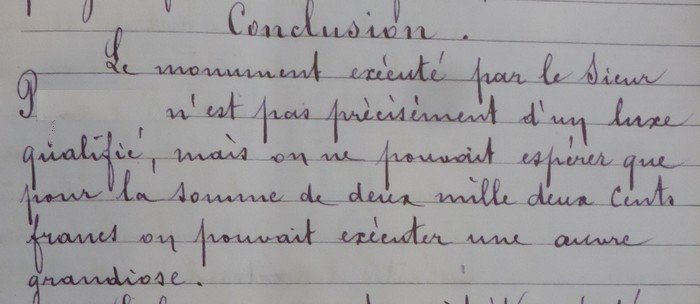 Conclusion.
Le monument exécuté par le Sieur
P n'est pas précisément d'un luxe
qualifié, mais on ne pouvait espérer que
pour la somme de deux mille deux cents
francs on pouvait exécuter une œuvre
grandiose.